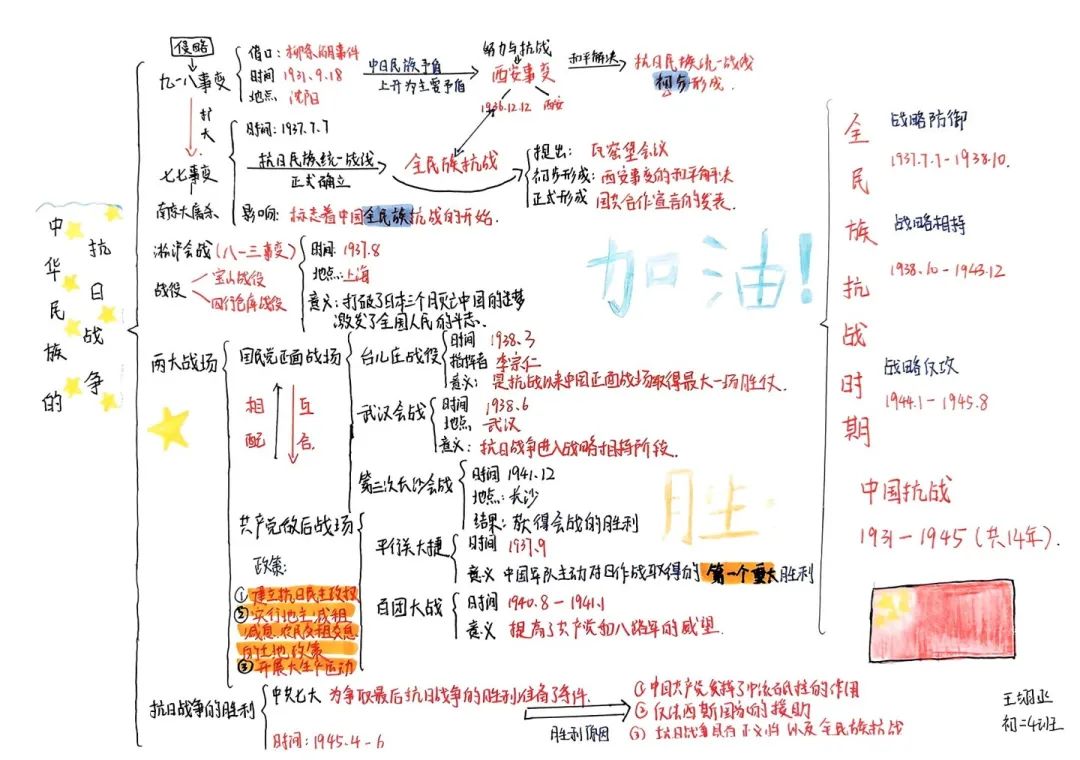 中华民族的
抗日战争
侵略
九一八事变
借口：柳条湖事件
时间 1931.9.18
地点：沈阳
中日民族矛盾
上升为主要矛盾
努力与抗战
西安事变
1936.12.12 西安
和平解决
抗日民族统一战线
初步形成.
扩大
七七事变
南京大屠杀
时间：1937.7.7
抗日民族统一战线
正式确立
全民族抗战
提出：瓦窑堡会议
初步形成：西安事变的和平解决
正式形成 国共合作宣言的发表.
影响：标志着中国全民族抗战的开始.
淞沪会战(八一三事变)
战役
宝山战役
四行仓库战役
时间：1937.8
地点：上海
意义：打破了日本三个月灭亡中国的迷梦
激发了全国人民的斗志.
加油！
两大战场
国民党正面战场
相互
配合
台儿庄战役
时间 1938.3
指挥者 李宗仁
意义：是抗战以来中国正面战场取得最大一场胜仗.
武汉会战
时间 1938.6
地点：武汉
意义：抗日战争进入战略相持阶段.
第三次长沙会战
时间 1941.12
地点：长沙
结果：获得会战的胜利
共产党敌后战场
政策：
①建立抗日民主政权
②实行地主减租
减息.农民交租交息
的土地政策
③开展大生产运动
平型关大捷
时间 1937.9
意义 中国军队主动对日作战取得的第一个重大胜利
百团大战
时间 1940.8-1941.1
意义 提高了共产党和八路军的威望.
抗日战争的胜利
中共七大 为争取最后抗日战争的胜利准备了条件.
时间：1945.4-6
胜利原因
①中国共产党发挥了中流砥柱的作用
②反法西斯国家的援助
③抗日战争具有正义性以及全民族抗战
全民族抗战时期
战略防御
1937.7.7-1938.10.
战略相持
1938.10-1943.12
战略反攻
1944.1-1945.8
中国抗战
1931-1945(共14年).
初二4班